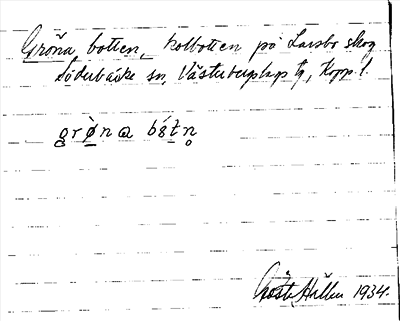 Gröna botten, kolbotten på Larsbo skog
Söderbärke sn, Västerbergslags tg, Kopp. l.
grøna bótn
Gösta Hallen 1934.